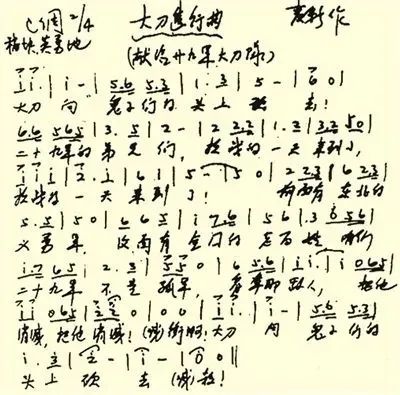 C调 2/4 大刀進行曲 麦新作
稍快英勇地
(献给廿九军大刀队)
i i. | i - | 5.6 5.3 | 1 . 3 | 5 - | 6 0 |
大刀 向 鬼子们的 头上 砍 去!
6.6 5 6 5 | 3 . 5 | 2 - | 2 2 3 | 1 . 3 | 2 3 5 0 |
二十九军的 弟兄们, 抗战的一天来到了,
i i i | 2 . i | 6 i | 5 - | 5 0 | 2 2 3 | 6 2 3 |
抗战的一天 来到了! 前面有 东北的
5 . 5 | 5 0 | 6 6 5 | i 7.6 | 5 6 | . 3 0 5 6 |
义勇军, 后面有 全国的 老百姓 咱们
i.7 6 5 | 2 . 3 | 5 5 0 | 6 5.6 | i i. | i 0 6 5 |
二十九军 不是 孤军, 看準那敌人, 把他
i i 0 6 5 | 2 2 0 | 0 0 | i i. | i - | 5.6 5.3 |
消滅,把他 消滅! (喊)衝啊! 大刀 向 鬼子们的
i . 3 | 2 - | i - | 0 0 ||
头上 砍 去 (喊)殺!